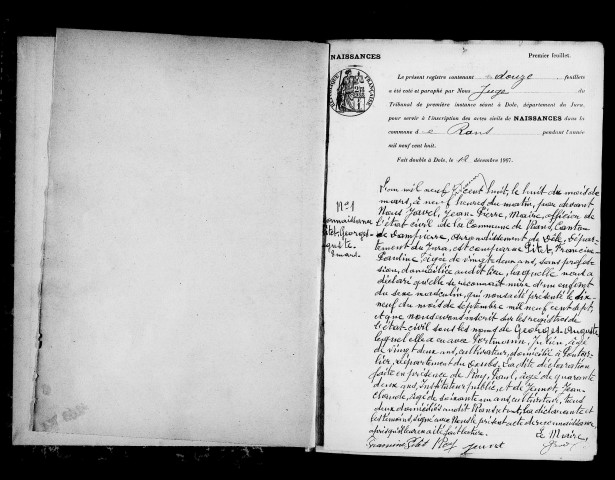 NAISSANCES
Premier feuillet.
RÉPUBLIQUE FRANÇAISE
Le présent registre contenant douze feuillets
a été coté et paraphé par Nous Juge du
Tribunal de première instance séant à Dole, département du Jura,
pour servir à l'inscription des actes civils de NAISSANCES dans la
commune de Rans pendant l'année
mil neuf cent huit.
Fait double à Dole, le 12 décembre 1907.
N° 1
connaissance
Pitet, Georges-
Auguste
8 mars.
L'an mil neuf cent huit, le huit du mois de
mars, à neuf heures du matin, par devant
Nous Javel, Jean Pierre, Maire, officier de
l'état civil de la Commune de Rans, Canton
de Dampierre, arrondissement de Dole, dépar-
tement du Jura, est comparue Pitet, Francine
Pauline, âgée de vingt deux ans, sans profes-
sion, domiciliée audit lieu, laquelle nous a
déclaré qu'elle se reconnait mère d'un enfant
du sexe masculin, qui nous a été présenté le dix
neuf du mois de septembre mil neuf cent sept,
et que nous avons inscrit sur les registres de
l'état civil sous les noms de Georges-Auguste
lequel elle a eu avec Portmann, Julien, âgé
de vingt deux ans, cultivateur, domicilié à Pontar-
lier, département du Doubs. La dite déclaration
faite en présence de Roy, Paul, âgé de quarante
deux ans, Instituteur public, et de Jeunot, Jean
Claude, âgé de soixante ans, cultivateur, tous
deux domiciliés audit Rans et la déclarante et
les témoins, signé avec Nous le présent acte de reconnaissance
après qu'il leur en a été fait lecture.
Le Maire,
Francine Pitet Roy Jeunot